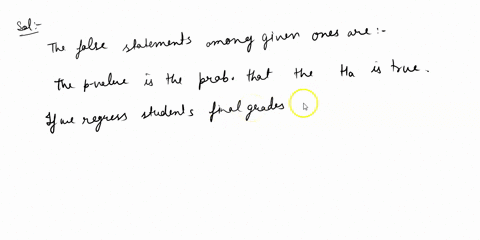 Sol:-
The false statements among given ones are:-
The pvalue is the prob. that the Ha is true.
If we regress students final grades